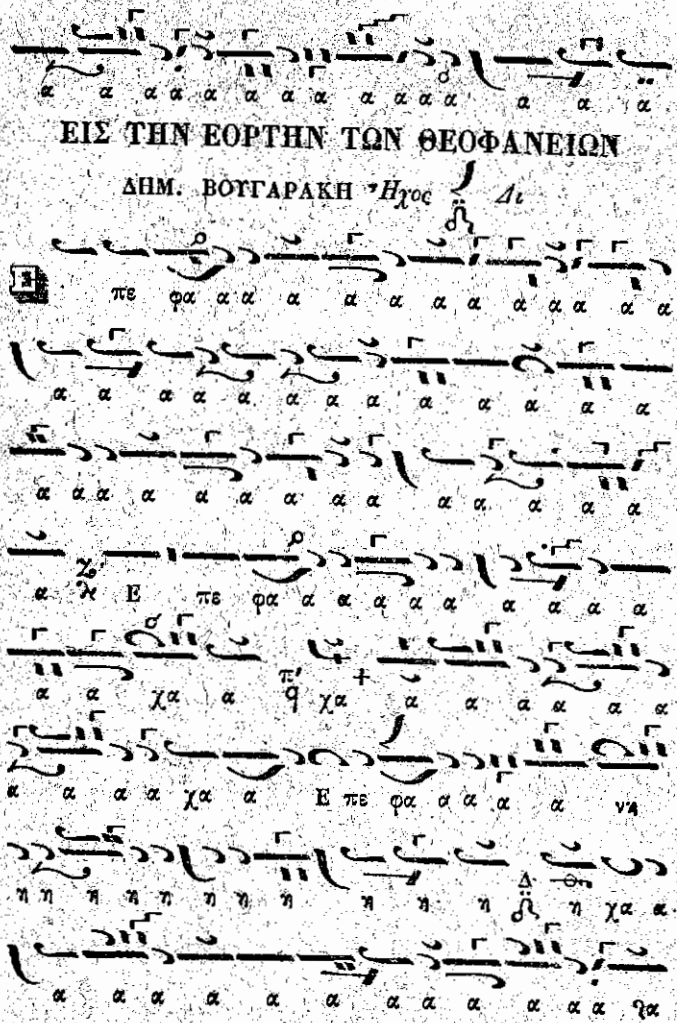 α α α α α α α α α α α α α α α
ΕΙΣ ΤΗΝ ΕΟΡΤΗΝ ΤΩΝ ΘΕΟΦΑΝΕΙΩΝ
ΔΗΜ. ΒΟΥΓΑΡΑΚΗ Ἦχος Δι
πε φα α α α α α α α α α α α α
α α α α α α α α α α α α α
α α α α α α α α α α α α α α
α Ε πε φα α α α α α α α α α
α α χα α π' q χα α α α α α α
α α α α χα α Ε πε φα α α α α νη
η η η η η η η η η η η Δ η χα α
α α α α α α α α α α α α λα